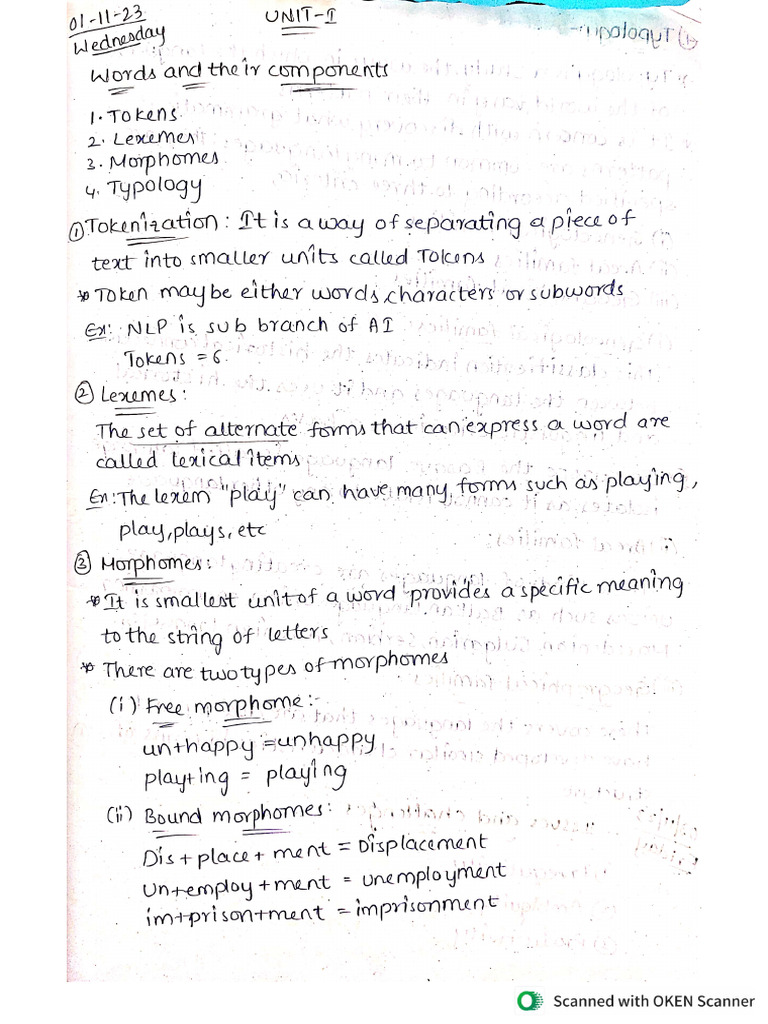 01-11-23
Wednesday
UNIT-I
4) Typology:-
Words and their components
1. Tokens.
2. Lexemes
3. Morphomes
4. Typology
① Tokenization: It is a way of separating a piece of
text into smaller units called Tokens
* Token may be either words, characters or subwords
Ex: NLP is sub branch of AI
Tokens = 6.
② Lexemes:
The set of alternate forms that can express a word are
called lexical items
Ex: The lexem "play" can have many forms such as playing,
play, plays, etc
③ Morphomes:
* It is smallest unit of a word provides a specific meaning
to the string of letters
* There are two types of morphomes
(i) Free morphome:-
un+happy = unhappy
play+ing = playing
(ii) Bound morphomes:
Dis + place + ment = Displacement
un+employ+ment = unemployment
im+prison+ment = imprisonment
Scanned with OKEN Scanner